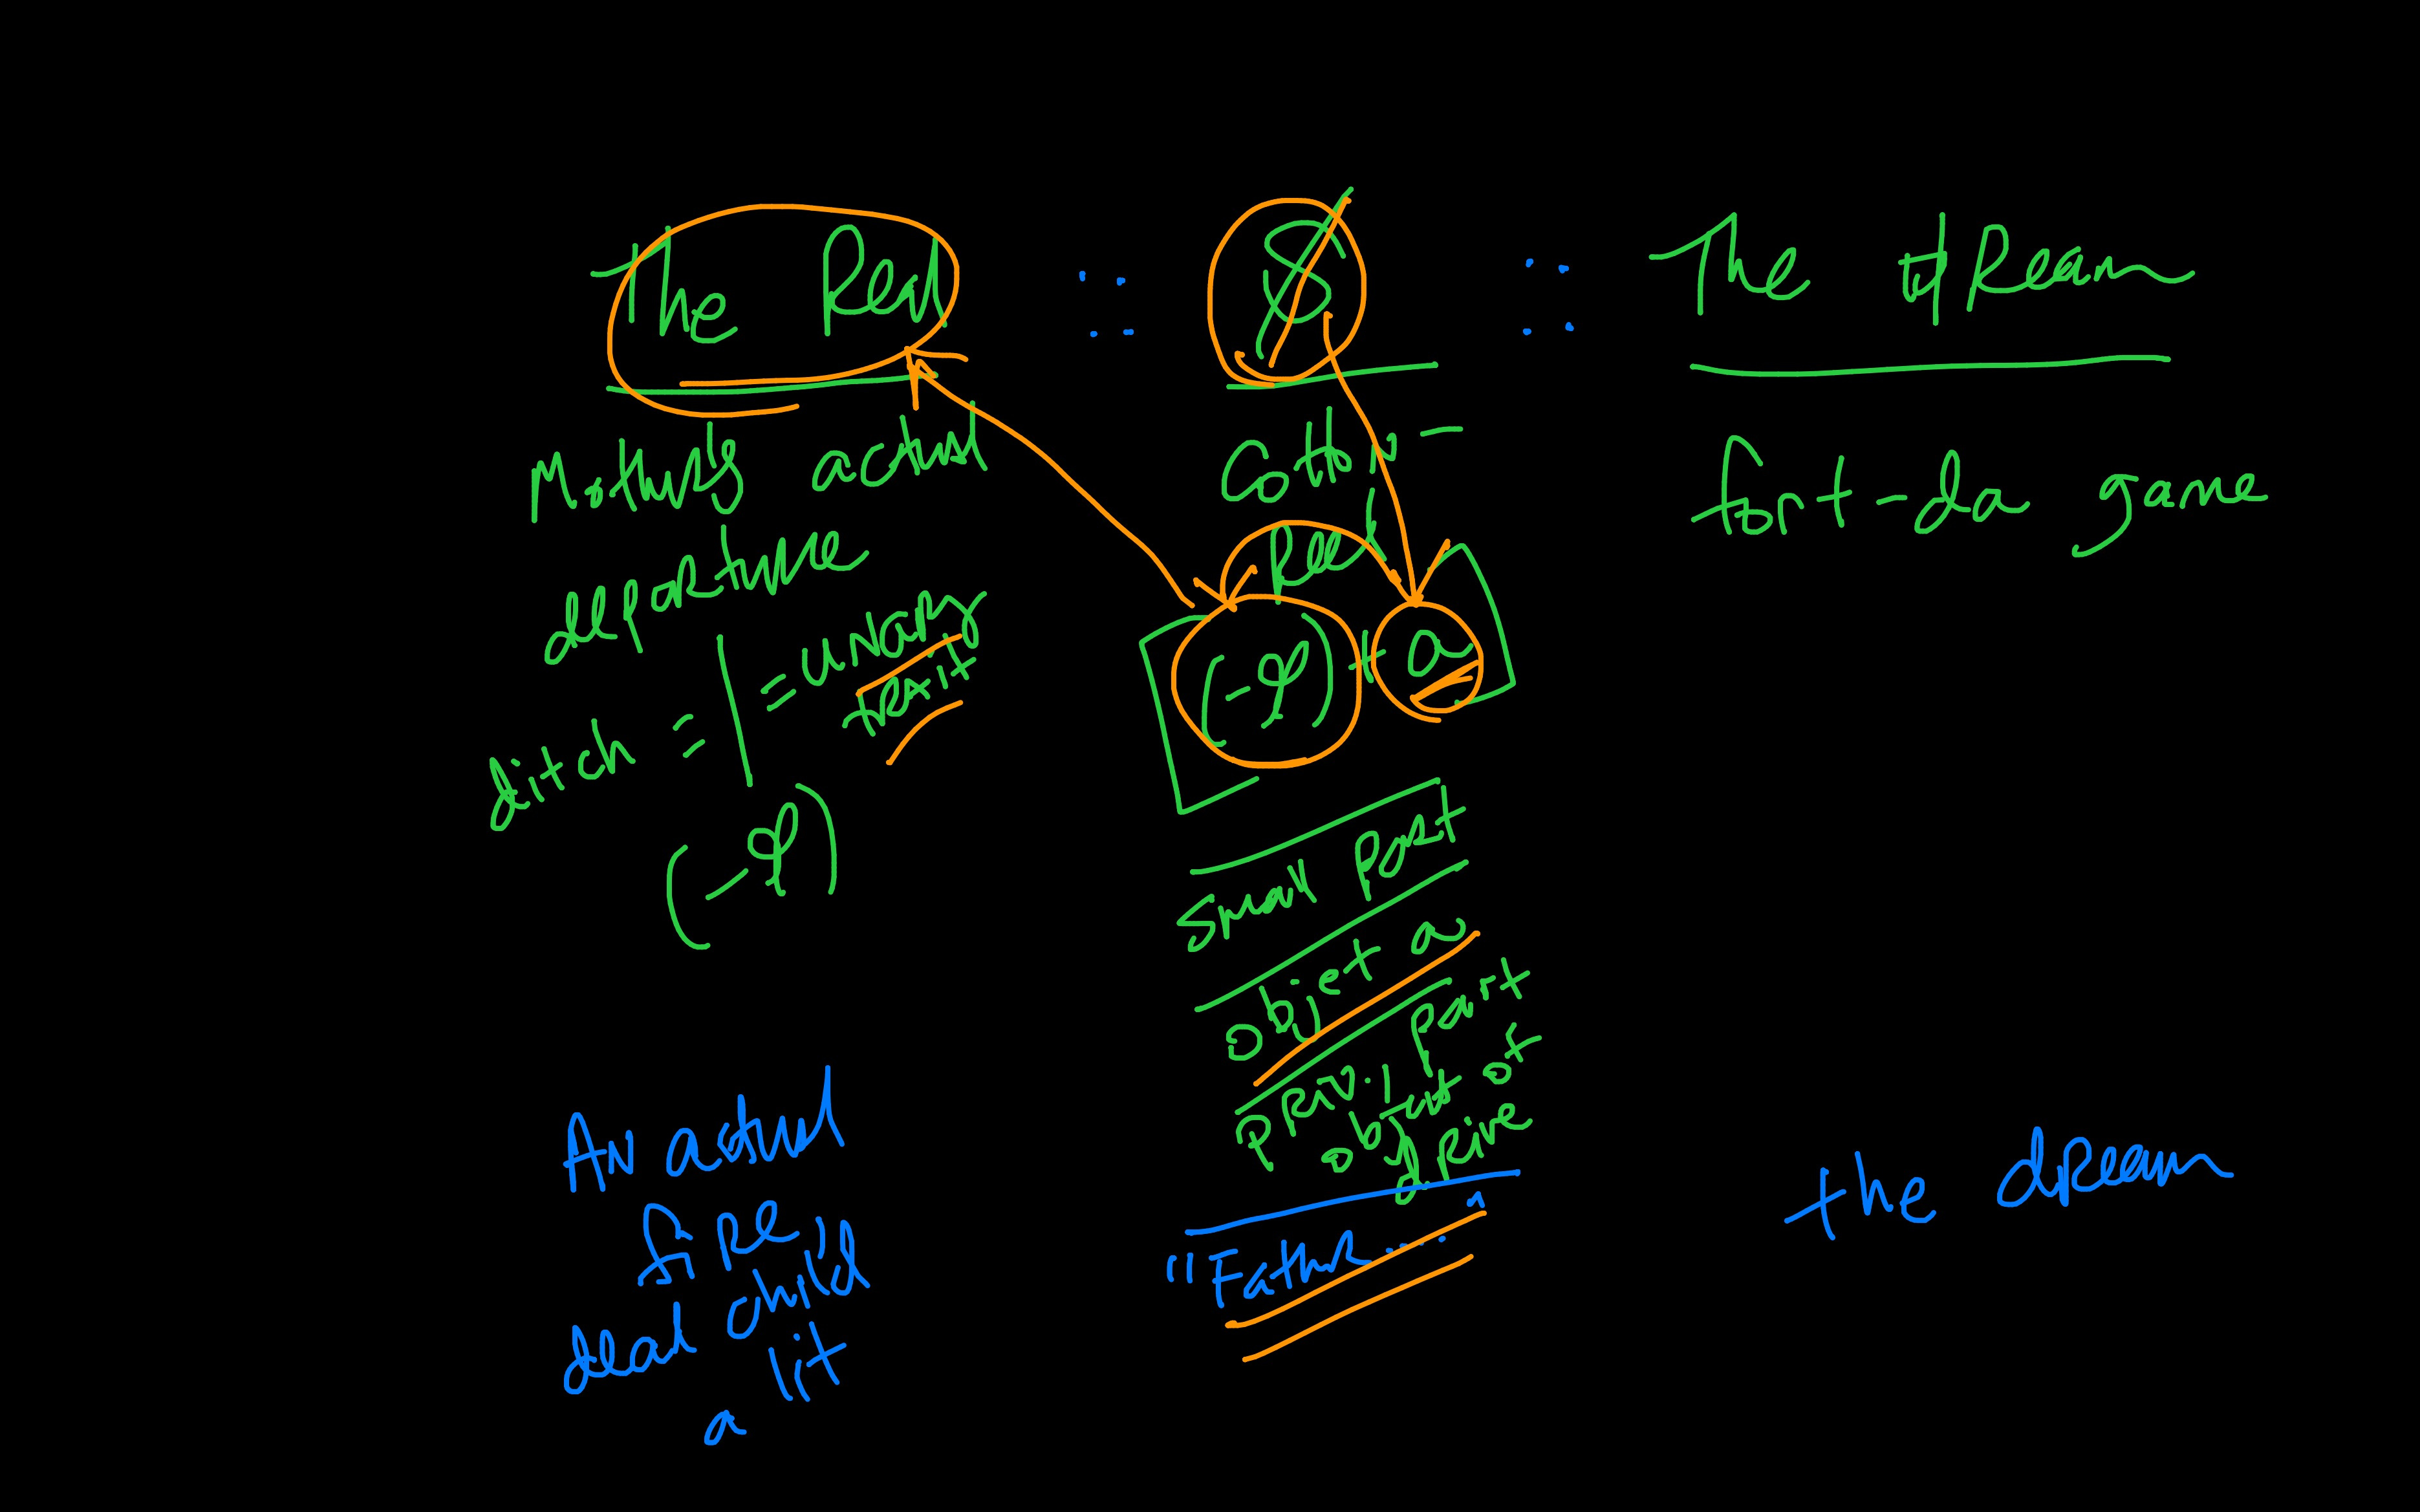 The Real :: $ :: The dream
Mother's actual
departure
ditch = | = unary
trait
(-φ)
Cotton-
Reel
(-φ) + a
Small part
objet a
Privil part
object of
drive
"Father...."
fort-da game
An actual
fire,
dead child
a lit
the dream